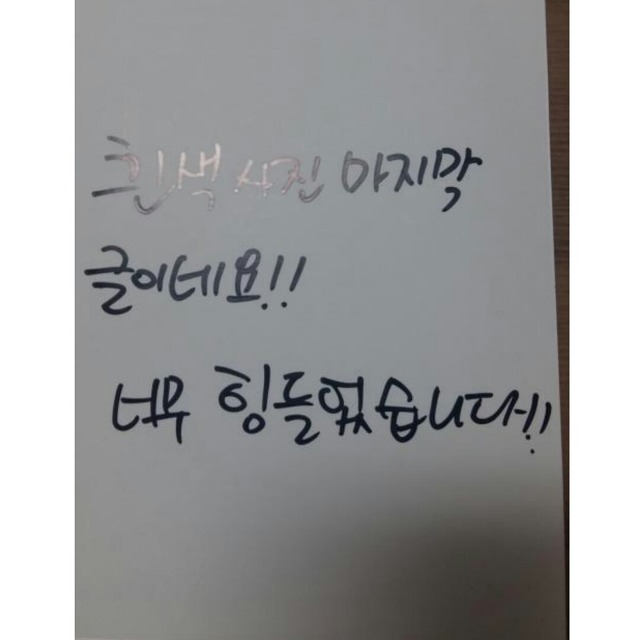 흰색 사진 마지막
글이네요!!
너무 힘들었습니다!!